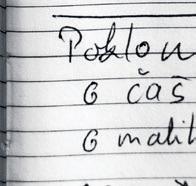 Poklon
6 čaš
6 malih